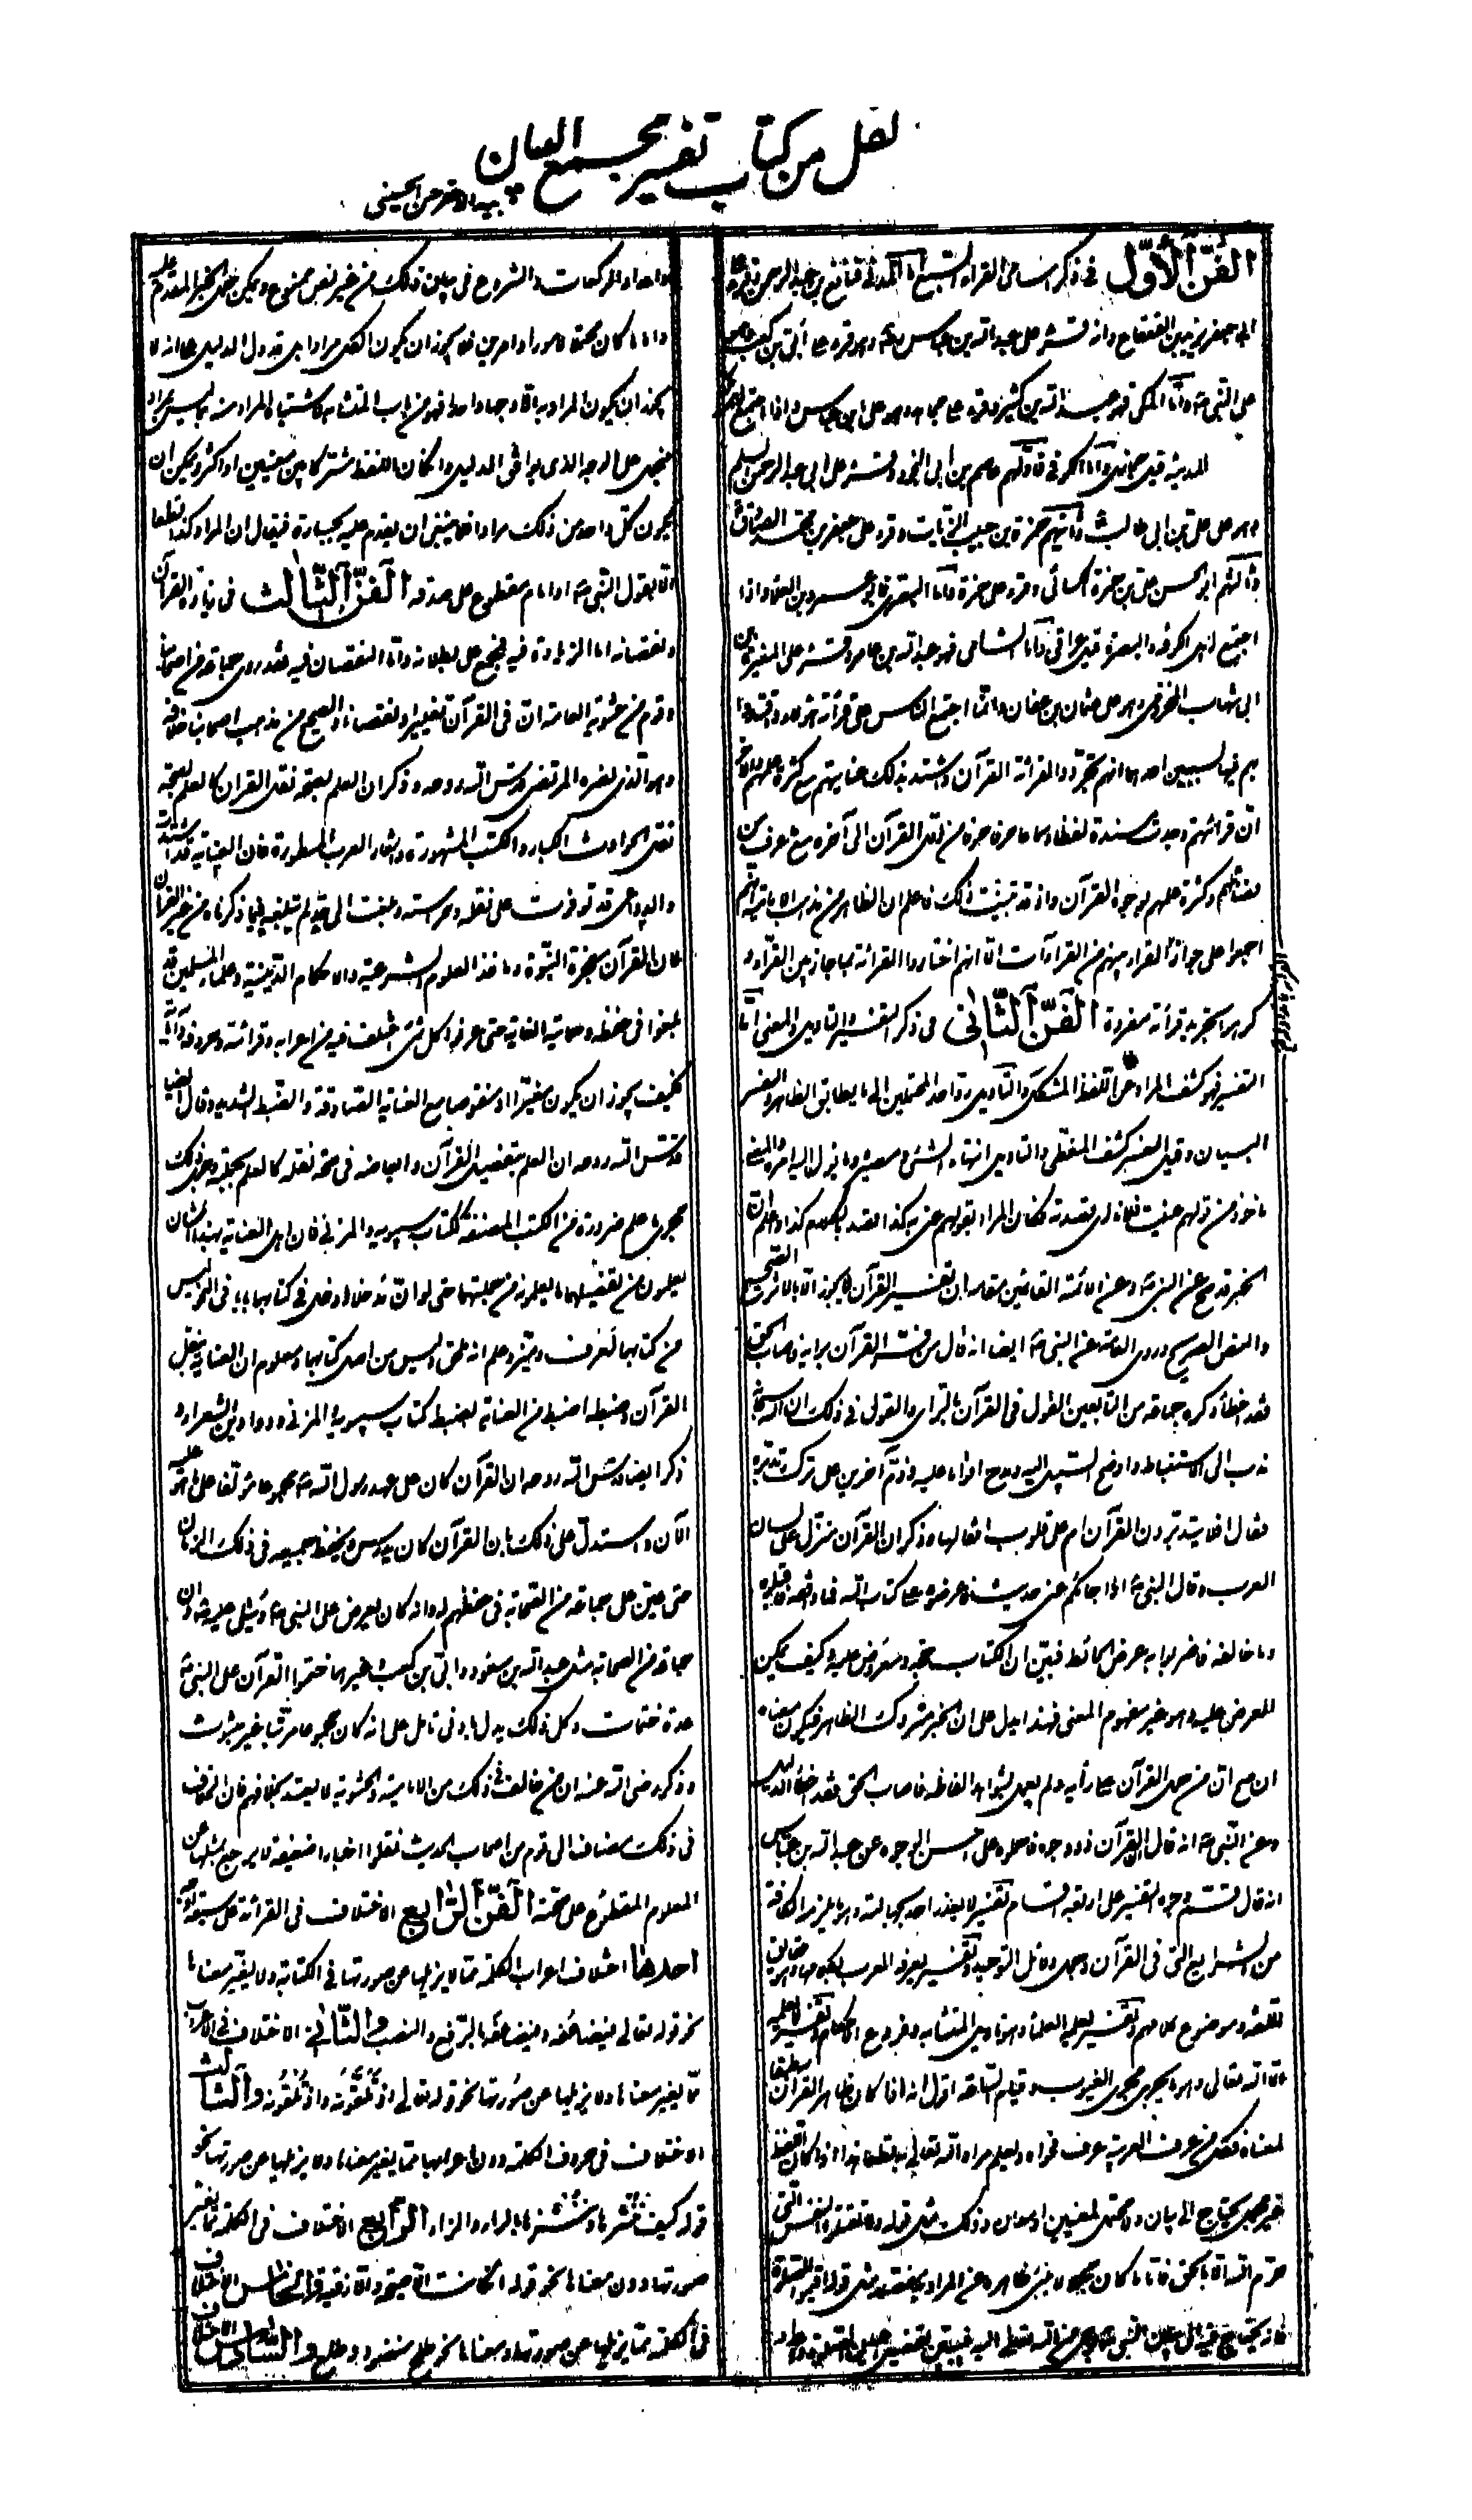 نقل من كتاب تفسير مجمع البيان
الفن الأول فى ذكر اسامى القراء السبع اما المدنى فنافع بن عبد الرحمن وقرء على
ابى جعفر يزيد بن القعقاع وانه قد قرء على عبد الله بن عباس وهو قرء على ابى بن كعب وهو
على النبى واما المكى فهو عبد الله بن كثير وقرء على مجاهد وهو على ابن عباس واذا اجتمع اهل مكة
المدينة قيل حجازى واما الكوفى فاولهم عاصم بن ابى النجود وقرء على ابى عبد الرحمن السلمى
وهو على على بن ابى طالب وثانيهم حمزة بن حبيب الزيات وقرء على جعفر بن محمد الصادق
وثالثهم ابو الحسن على بن حمزة الكسائى وقرء على حمزة واما البصرى فابو عمرو بن العلاء واذا
اجتمع اهل الكوفة والبصرة قيل عراقى واما الشامى فهو عبد الله بن عامر وقرء على المغيرة بن
ابى شهاب المخزومى وهو على عثمان بن عفان وانما اجتمع الناس على قرائة هؤلاء واقتدوا
بهم فيها لسببين احدهما انهم تجردوا لقرائة القرآن واشتد بذلك عنايتهم مع كثرة علمهم والاخر
ان قرائتهم وجدت مسندة لفظا وسماعا حرفا حرفا من اول القرآن الى آخره مع ما عرف من
فضائلهم وكثرة علمهم بوجوه القرآن واذ قد تبينت ذلك فاعلم ان الظاهر من مذهب الامامية انهم
اجمعوا على جواز القراءة بينهم من القراآت الا انهم اختاروا القرائة بما جاز بين القراء و
كرهوا تجريد قرائة مفردة الفن الثانى فى ذكر التفسير والتاويل والمعنى اما
التفسير فهو كشف المراد عن اللفظ المشكل والتاويل رد احد المحتملين الى ما يطابق الظاهر والتفسير
البيان وقيل التفسير كشف المغطى والتاويل انتهاء الشئ ومصيره وما يؤل اليه امره والمعنى
ماخوذ من قولهم عنيت فلانا اى قصدته فكان المراد بقولهم عنى به كذا قصد بالكلام كذا واعلم ان
الخبر قد صح عن النبى وعن الائمة القائمين مقامه ان تفسير القرآن لا يجوز الا بالاثر الصحيح
والنص الصريح وروى العامة عن النبى ايضا انه قال من فسر القرآن برايه فاصاب الحق
فقد اخطأ وكره جماعة من التابعين القول فى القرآن بالراى والقول فى ذلك ان الله سبحانه
ندب الى الاستنباط واوضح السبيل اليه ومدح اقواما عليه وذم آخرين على ترك تدبره
فقال افلا يتدبرون القرآن ام على قلوب اقفالها وذكر ان القرآن منزل على لسان
العرب وقال النبى اذا جاءكم عنى حديث فاعرضوه على كتاب الله فما وافقه فاقبلوه
وما خالفه فاضربوا به عرض الحائط فبين ان الكتاب حجة ومعروض عليه وكيف يمكن
العرض عليه وهو غير مفهوم المعنى فهذا يدل على ان الخبر متروك الظاهر فيكون معناه
ان صح ان من حمل القرآن على رأيه ولم يعمل بشواهد الفاظه فاصاب الحق فقد اخطأ الدليل
وعن النبى انه قال القرآن ذو وجوه فاحملوه على احسن الوجوه عن عبد الله بن عباس
انه قال قسم وجوه التفسير على اربعة اقسام تفسير لا يعذر احد بجهالته وهو ما يلزم الكافة
من الشرايع التى فى القرآن وجمل دلائل التوحيد وتفسير يعرفه العرب بكلامها وهو حقايق
اللغة وموضوع كلامهم وتفسير يعلمه العلماء وهو تاويل المتشابه وفروع الاحكام وتفسير لا يعلمه
الا الله تعالى وهو ما يجرى مجرى الغيوب وقيام الساعة اقول انه اذا كان ظاهر القرآن مطابقا
لمعناه فكل من عرف العربية عرف فحواه ويعلم مراد الله تعالى به قطعا هذا واذا كان اللفظ
غير مجمل يحتاج الى بيان ولا محتمل لمعنيين او معان وذلك مثل قوله ولا تقتلوا النفس التى
حرم الله الا بالحق فاما ما كان مجملا لا ينبئ ظاهره عن المراد به مفصلا مثل قوله اقيموا الصلوة
فانه يحتاج فيه الى بيان النبى
واعداد الركعات والشروع فى بيان ذلك من غير نص ممنوع ويمكن حمل الخبر المقدم عليه
واما ما كان محتملا لامور او امرين فلا يجوز ان يكون الكل مرادا بل قد دل الدليل على انه لا
يجوز ان يكون المراد به الا وجها واحدا فهو من باب المتشابه لاشتباه المراد منه بما ليس بمراد
فيحمل على الوجه الذى يوافق الدليل وان كان اللفظ مشتركا بين معنيين او اكثر ويمكن ان
يكون كل واحد من ذلك مرادا فلا ينبغى ان يقدم عليه بجسارة فيقال ان المراد كذا قطعا
الا بقول النبى او امام مقطوع على صدقه الفن الثالث فى زيادة القرآن
ونقصانه اما الزيادة فيه فمجمع على بطلانه واما النقصان فيه فقد روى جماعة من اصحابنا
وقوم من حشوية العامة ان فى القرآن تغييرا ونقصانا والصحيح من مذهب اصحابنا خلافه
وهو الذى نصره المرتضى قدس الله روحه وذكر ان العلم بصحة نقل القران كالعلم بصحة
نقل الحوادث الكبار والكتب المشهورة واشعار العرب المسطورة فان العناية قد اشتدت
والدواعى قد توفرت على نقله وحراسته وبلغت الى حد لم تبلغه فيما ذكرناه من غير القرآن
فان القرآن معجزة النبوة وماخذ العلوم الشرعية والاحكام الدينية وعلماء المسلمين قد
بلغوا فى حفظه وحمايته الغاية حتى عرفوا كل شئ اختلف فيه من اعرابه وقرائته وحروفه وآياته
فكيف يجوز ان يكون مغيرا او منقوصا مع العناية الصادقة والضبط الشديد وقال ايضا
قدس الله روحه ان العلم بتفصيل القرآن وابعاضه فى صحة نقله كالعلم بجملته وجرى ذلك
مجرى ما علم ضرورة من الكتب المصنفة ككتاب سيبويه والمزنى فان اهل العناية بهذا الشان
يعلمون من تفصيلهما ما يعلمونه من جملتهما حتى لو ان مدخلا ادخل فى كتابهما بابا فى النحو ليس
من كتابهما لعرف وميز وعلم انه ملحق وليس من اصل كتابهما ومعلوم ان العناية بنقل
القرآن وضبطه اضبط من العناية بضبط كتاب سيبويه والمزنى ودواوين الشعراء و
ذكر ايضا قدس الله روحه ان القرآن كان على عهد رسول الله مجموعا مؤلفا على ما هو عليه
الآن واستدل على ذلك بان القرآن كان يدرس ويحفظ جميعه فى ذلك الزمان
حتى عين على جماعة من الصحابة فى حفظهم له وانه كان يعرض على النبى ويتلى عليه وان
جماعة من الصحابة مثل عبد الله بن مسعود وابى بن كعب وغيرهما ختموا القرآن على النبى
عدة ختمات وكل ذلك يدل بادنى تامل على انه كان مجموعا مرتبا غير مبثوث
وذكر رضى الله عنه ان من خالف فى ذلك من الامامية والحشوية لا يعتد بخلافهم فان الخلاف
فى ذلك مضاف الى قوم من اصحاب الحديث نقلوا اخبارا ضعيفة لا يرجع بمثلها عن
المعلوم المقطوع على صحته الفن الرابع الاختلاف فى القرائة على سبعة اوجه
احدها اختلاف اعراب الكلمة مما لا يزيلها عن صورتها فى الكتابة ولا يغير معناها
نحو قوله تعالى فيضاعفه وفيضاعفه بالرفع والنصب والثانى الاختلاف فى الاعراب
مما يغير معناها ولا يزيلها عن صورتها نحو قوله تعالى اذ تلقونه واذ تلقونه والثالث
الاختلاف فى حروف الكلمة دون اعرابها مما يغير معناها ولا يزيلها عن صورتها نحو
قوله كيف ننشرها وننشزها بالراء والزاء الرابع الاختلاف فى الكلمة مما يغير
صورتها دون معناها نحو قوله ان كانت الا صيحة والا زقية والخامس الاختلاف
فى الكلمة مما يزيلها عن صورتها ومعناها نحو طلح منضود وطلع والسادس الاختلاف